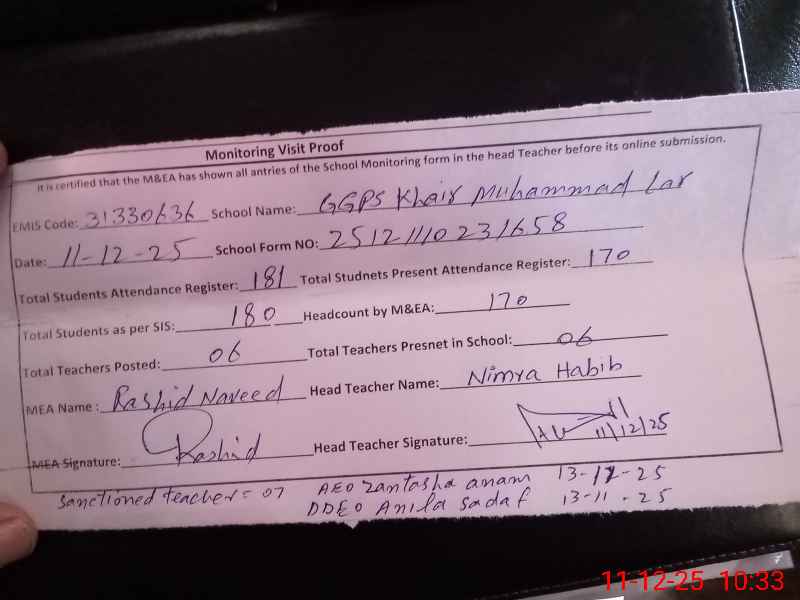 Monitoring Visit Proof
It is certified that the M&EA has shown all antries of the School Monitoring form in the head Teacher before its online submission.
EMIS Code: 31330636 School Name: GGPS Khair Muhammad Lar
Date: 11-12-25 School Form NO: 2512111023 1658
Total Students Attendance Register: 181 Total Studnets Present Attendance Register: 170
Total Students as per SIS: 180 Headcount by M&EA: 170
Total Teachers Posted: 06 Total Teachers Presnet in School: 06
MEA Name : Rashid Naveed Head Teacher Name: Nimra Habib
MEA Signature: Rashid Head Teacher Signature: 11/12/25
Sanctioned teacher = 07 AEO Zantasha anam 13-11-25
DDEO Anila sadaf 13-11-25
11-12-25 10:33